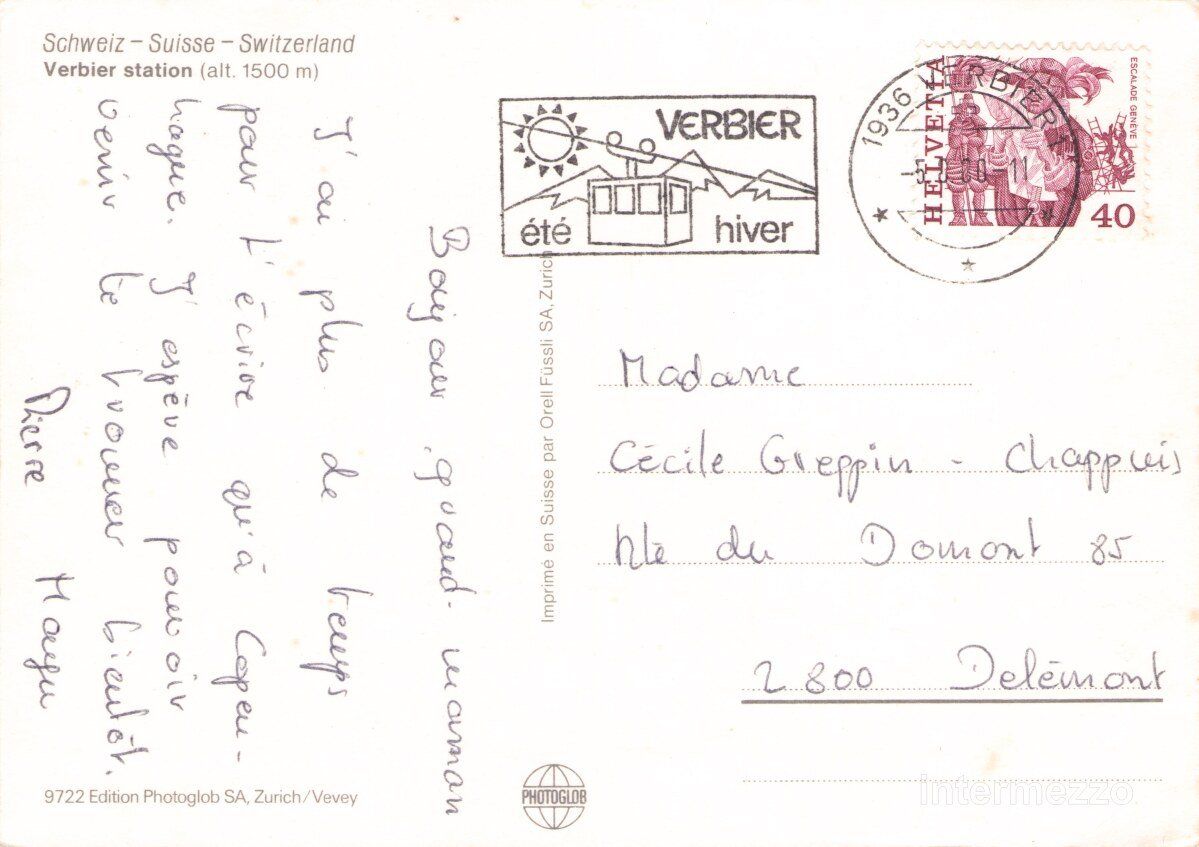 Schweiz – Suisse – Switzerland
Verbier station (alt. 1500 m)
Bonjour, grand-maman
J'ai plus de temps
pour t'écrire qu'à Copen-
hague. J'espère pouvoir
venir te trouver bientôt.
Pierre
9722 Edition Photoglob SA, Zurich/Vevey
Imprimé en Suisse par Orell Füssli SA, Zurich
PHOTOGLOB
VERBIER
été hiver
1936 VERBIER 1
HELVETIA
ESCALADE GENÈVE
40
Madame
Cécile Greppin - Chappuis
Rte du Domont 85
2800 Delémont
intermezzo